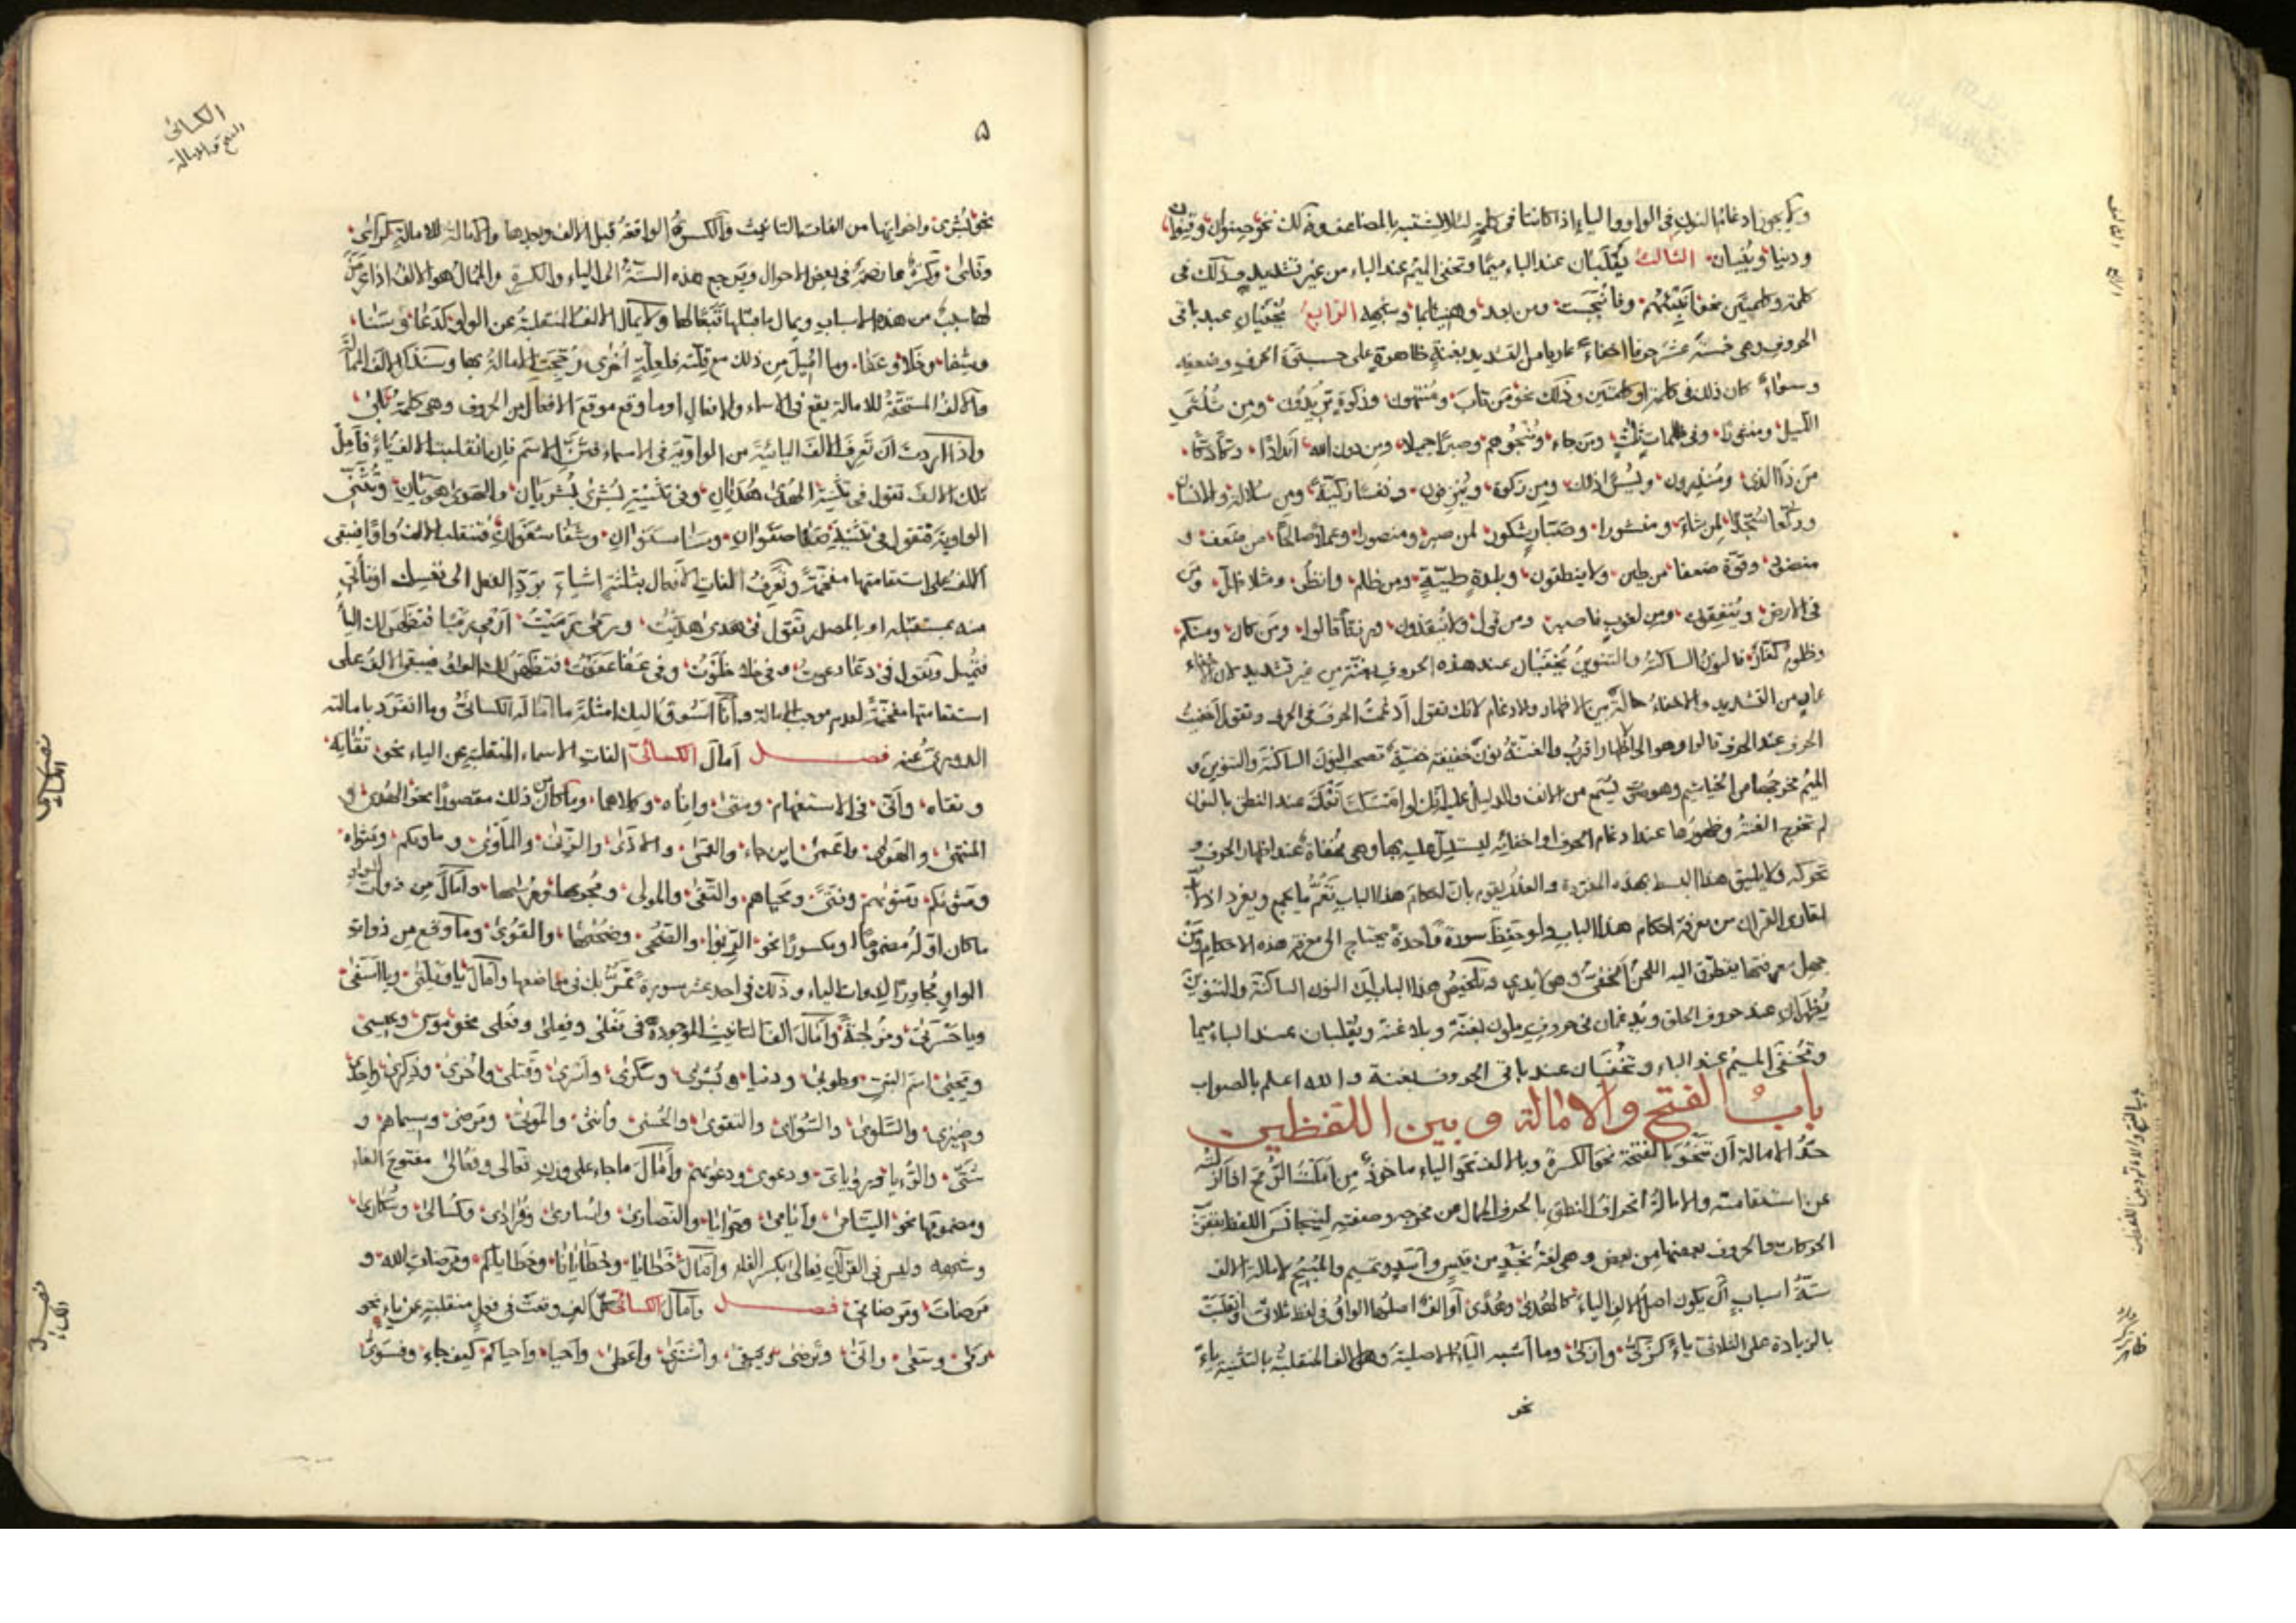 ولا يجوز ادغام النون فى الواو والياء اذا كانتا فى كلمة لئلا يشتبه بالمضاعف وذلك نحو صنوان وقنوان
ودنيا وبنيان الثالث يُقلبان عند الباء ميما وتخفى الميم عند الباء من غير تشديد وذلك فى
كلمة وكلمتين نحو انبئهم وفانبجست ومن بعد وهنيئا بما الرابع يخفيان عند باقى
الحروف وهى خمسة عشر حرفا اخفاء عاريا من التشديد بغنة ظاهرة على حسب قوة الحرف وضعفه
وسواء كان ذلك فى كلمة او كلمتين وذلك نحو من تاب ومنتهون وزكوة تريدون ومن ثلثى
الليل ومنثورا وفى ظلمات ثلث ومن جاء وننجوهم وصبرا جميلا ومن دون الله اندادا
من ذا الذى ومنذرون ومن زكوة وينزفون ونفسا زكية ومن سلالة والانسان
لمن شاء ومنشورا وصبار شكور لمن صبر ومنصورا وعملا صالحا من ضعف و
منضود وقوة ضعفا من طين ولا ينطقون وبلدة طيبة ومن ظلم وانظر ومثلا ظل ومن
فى الارض وينفقون ومن لغوب فاصبر ومن قبل ولا ينقذون ورزقا قالوا ومن كان ومنكم
وظلوم كفار فالنون الساكنة والتنوين يخفيان عند هذه الحروف بغنة من غير تشديد لان الاخفاء
عار من التشديد والاخفاء حالة بين الاظهار والادغام لانك تقول ادغمت الحرف فى الحرف وتقول اخفيت
الحرف عند الحرف قالوا وهو الى الاظهار اقرب والغنة نون خفيفة خفية تصحب النون الساكنة والتنوين و
الميم مخرجها من الخياشيم وهو صوت يسمع من الانف والدليل عليه انك لو امسكت انفك عند النطق بالنون
لم تخرج الغنة وظهورها عند ادغام الحرف او اخفائه ليستدل عليه بها وهى مخفاة عند اظهار الحرف و
تحركه ولا يليق هذا البسط بهذه المقدمة والعذر يقوم بان احكام هذا الباب تعم
لقارى القران من معرفة احكام هذا الباب ولو حفظ سورة واحدة يحتاج الى معرفة هذه الاحكام ومن
جهل معرفتها يتطرق اليه اللحن الخفى وهو لا يدرى وتلخيص هذا الباب ان النون الساكنة والتنوين
يظهران عند حروف الحلق ويدغمان فى حروف يرملون بغنة وبلا غنة ويقلبان عند الباء ميما
وتخفى الميم عند الباء وتخفيان عند باقى الحروف بغنة والله اعلم بالصواب
باب الفتح والامالة وبين اللفظين
حد الامالة ان تنحو بالفتحة نحو الكسرة وبالالف نحو الياء ماخوذ من املت الرمح اذا ازلته
عن استقامته والامالة انحراف النطق بالحرف الممال من مخرجه وصفته ليتجانس اللفظ
الحركات والحروف بعضها من بعض وهى لغة نجد من قيس واسد وتميم والمبيح لامالة الالف
ستة اسباب ان يكون اصل الالف الياء كالهدى وهدى او الف اصلها الواو فى لفظ ثلاثى وانقلبت
بالزيادة على الثلاثى ياء كزكى وازكى وما اشبه الياء الاصلية وهى الف المنقلبة بالتثنية ياء
نحو
باب الفتح والامالة وبين اللفظين
الكسائى
الفتح والامالة
۵
نحو بشرى واخواتها من الفات التانيث والكسرة الواقعة قبل الالف وبعدها والامالة للامالة كرأى
وترجع هذه الستة الى الياء والكسرة والممال هو الالف اذا عرض
لها سبب من هذه الاسباب ويمال ما قبلها تبعا لها ولا يمال الالف المنقلبة عن الواو كدعا وسنا
وشفا وخلا وعفا وما اميل من ذلك مع قلته فلعلة اخرى رجحت الامالة بها
والالف المستحقة للامالة يقع فى الاسماء والافعال او ما وقع موقع الافعال من الحروف وهى كلمة بلى
واذا اردت ان تعرف الالف اليائية من الواوية فى الاسماء فثن الاسم فان انقلبت الالف ياء فامل
تلك الالف تقول فى تثنية الهدى هديان وفى تثنية بشرى بشريان والهوى هويان وتثنى
الواوية فتقول فى تثنية صفا صفوان وسنا سنوان وشفا شفوان فتنقلب الالف واوا فيبقى
الالف على استقامتها مفخمة وتعرف الفات الافعال بثلثة اشياء برد الفعل الى نفسك او تأتى
منه بمستقبله او بالمصدر تقول فى هدى هديت ورمى رميت ارمى رميا فتظهر لك الياء
فتميل وتقول فى دعا دعوت وفى خلا خلوت وفى عفا عفوت فتظهر لك الواو فيبقى الالف على
استقامتها مفخمة لعدم موجب الامالة وانا اسوق اليك امثلة ما اماله الكسائى وما انفرد بامالته
الدورى عنه فصل امال الكسائى الفات الاسماء المنقلبة عن الياء نحو تقاته
وتقاه وانى فى الاستفهام ومتى واناه وكلاهما وما كان من ذلك مقصورا نحو الهدى و
المنتهى والهوى واعمى اين جاء والعمى والاذى والزنى والمأوى ومأويكم ومثواه
ومثويكم ومثويهم وفتى ومحياهم والتقى والمولى ومجريها ومرسيها وامال من ذوات الواو
ما كان اوله مضموما او مكسورا نحو الربوا والضحى وضحيها والقوى وما وقع من ذوات
الواو مجاورا لذوات الياء وذلك فى احد عشر سورة تمر بك فى مواضعها وامال يا ويلتى ويا اسفى
ويا حسرتى ومزجية وامال الف التانيث الموجودة فى فعلى وفعلى وفعلى نحو موسى وعيسى
ويحيى اسم النبى وطوبى ودنيا وبشرى وسكرى واسرى وقتلى واخرى وذكرى واحدى
وضيزى والسلوى والسوأى والتقوى والحسنى وانثى والموتى ومرضى وسيماهم و
شتى والرؤيا ورؤياى ودعوى ودعويهم وامال ما جاء على وزن فعالى وفعالى مفتوح الفاء
ومضمومها نحو اليتامى وايامى وحوايا والنصارى واسارى وفرادى وكسالى وسكارى
وشبهه وليس فى القرآن فعالى بكسر الفاء وامال خطايا وخطايانا وخطاياكم ومرضات الله و
مرضات ومرضاتى فصل وامال الكسائى كل الف وقعت فى فعل منقلبة عن ياء نحو
رمى وسعى واتى وترضى ويخفى واشترى واعطى واحيا واحياكم كيف جاء وفسوى